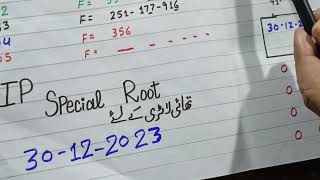 F= 251-177-916
F= 356
F=
IP Special Root
تھائی لاٹری کے لئے
30-12-2023
30-12-2
0
0
0